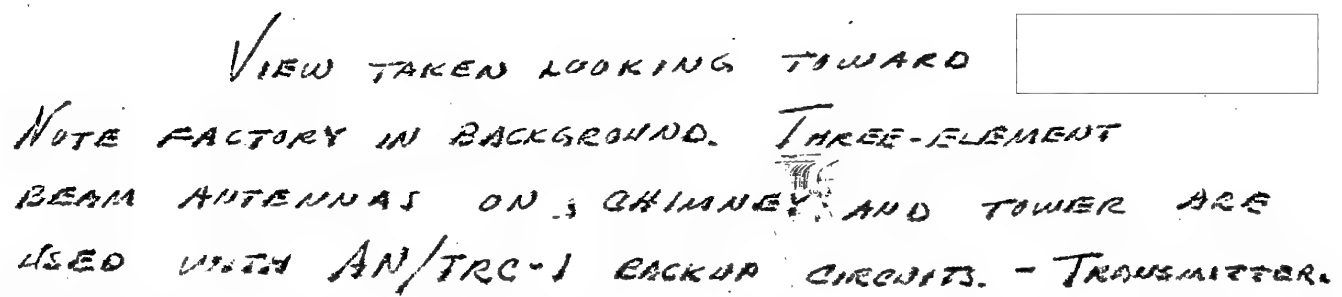 VIEW TAKEN LOOKING TOWARD
NOTE FACTORY IN BACKGROUND. THREE-ELEMENT
BEAM ANTENNAS ON CHIMNEY AND TOWER ARE
USED WITH AN/TRC-1 BACKUP CIRCUITS. - TRANSMITTER.